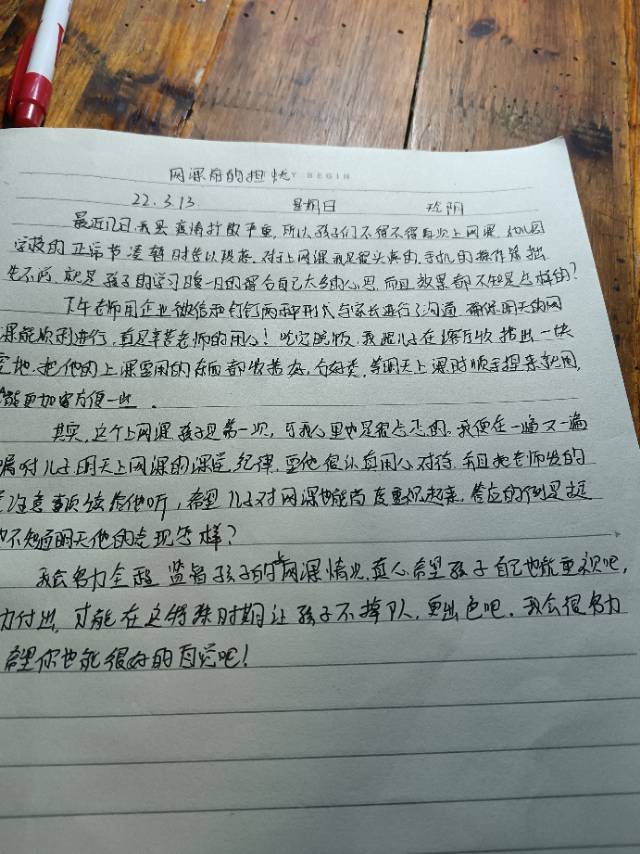 网课前的担忧 BEGIN
22.3.13 星期日 晴阴
最近几日我县疫情扩散严重,所以孩子们不得不得再次上网课,幼儿园
学校的正常节凑暂时告以段落,对于上网课我是很头疼的,手机的操作笨拙
先不两,就是孩子的学习陪一日的得合自己太多的心思,而且效果都不知是怎样的?
下午老师用企业微信和钉钉两种形式与家长进行了沟通,确保明天的网
课能顺利进行,真是辛苦老师的用心!吃完晚饭,我跟儿子在客厅收拾出一块
空地,把他的上课需用的东西都收拾好,分好类,等明天上课时顺手捏来就用,
能更加方便一些.
其实,这个上网课孩子是第一次,可我心里也是很忐忑的.我便在一遍又一遍
嘱咐儿子明天上网课的课堂纪律,要他很认真用心对待.并且把老师发的
注意事项读给他听,希望儿子对网课也能高度重视起来,答应的倒是挺
也不知道明天他的表现怎样?
我会努力全程监督孩子的网课情况,真心希望孩子自己也能重视吧,
力付出,才能在这特殊时期让孩子不掉队,更出色吧.我会很努力
希望你也能很好的自觉吧!